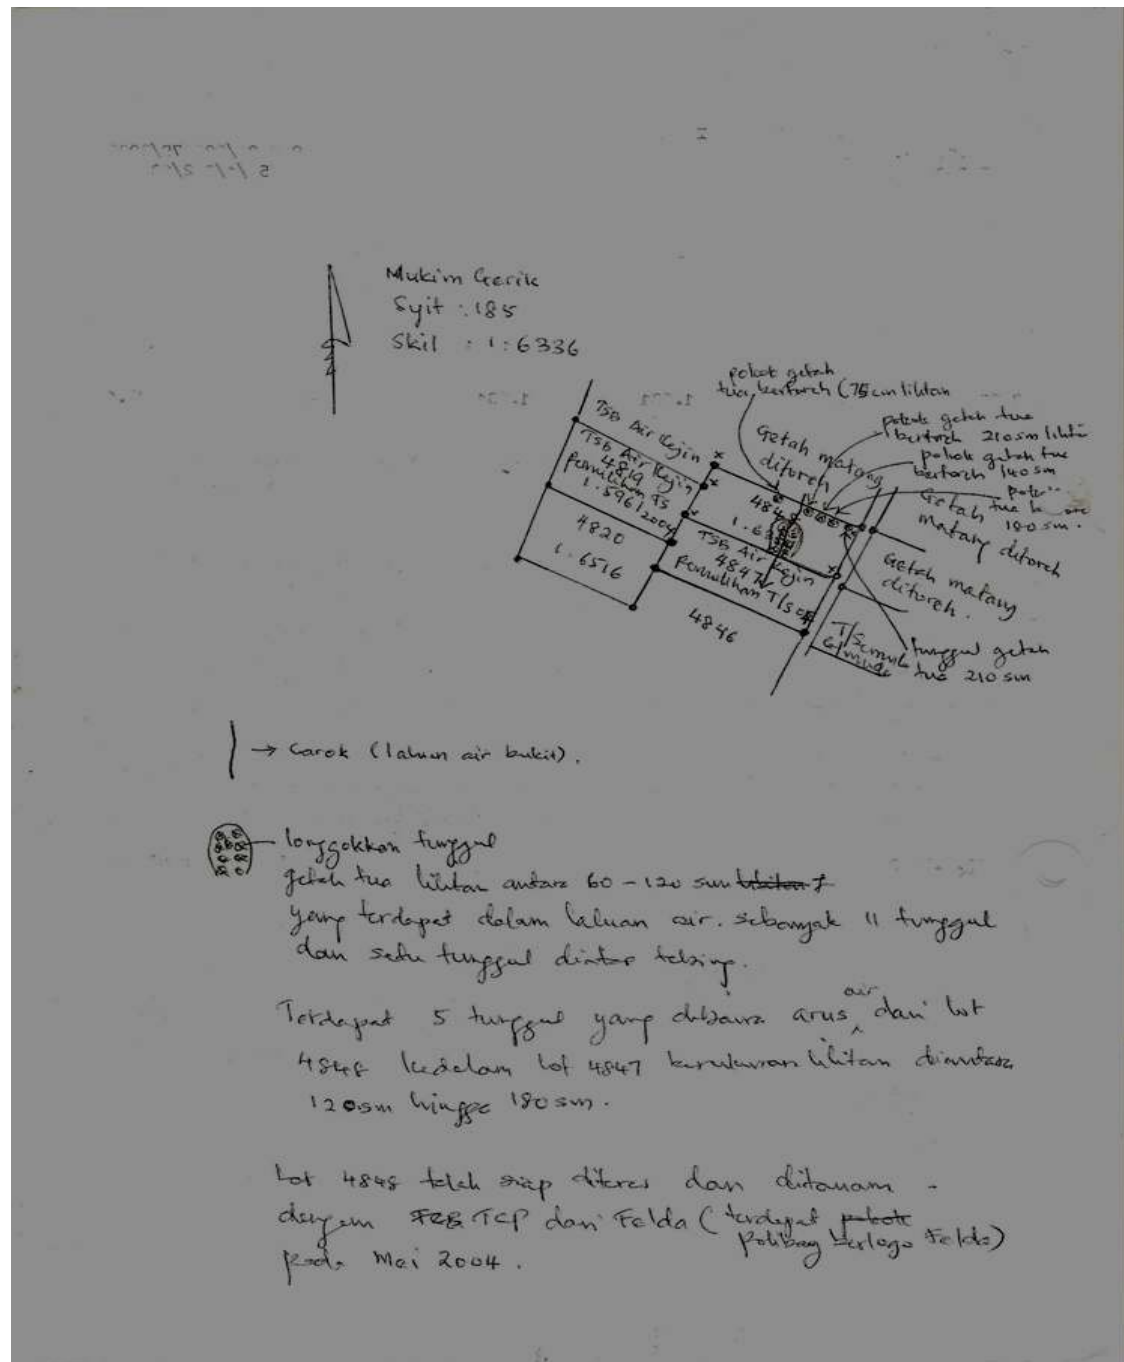 Mukim Gerik
Syit : 185
Skil : 1:6336
pokok getah
tua bertoreh (75cm lilitan
pokok getah tua
bertoreh 210sm lilitan
pokok getah tua
bertoreh 140 sm
180 sm.
TSB Air Kejin
TSB Air Kejin
4819
Pemulihan TS
1.596/2004
Getah matang
ditoreh
4848
Getah
matang ditoreh
4820
1.6516
TSB Air Kejin
4847
Pemulihan
Getah matang
ditoreh.
4846
tunggul getah
tua 210 sm
→ Carok (laluan air bukit).
longgokkan tunggul
getah tua lilitan antara 60 - 120 sm
yang terdapat dalam laluan air. sebanyak 11 tunggul
dan satu tunggul diatas tebing.
Terdapat 5 tunggul yang dibawa arus air dari lot
4848 kedalam lot 4847 berukuran lilitan diantara
120sm hingga 180sm.
Lot 4848 telah siap diteres dan ditanam -
dengan TCP dari Felda (terdapat pokok
polibag berlogo Felda)
pada Mei 2004.